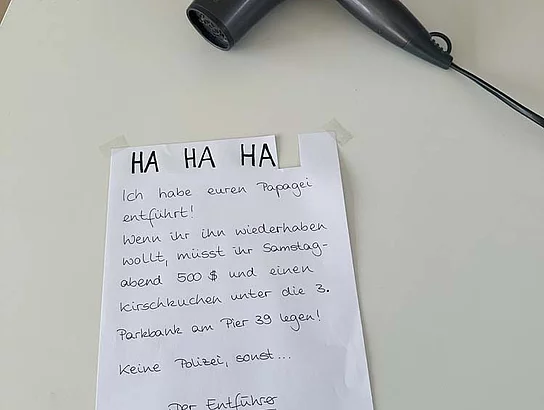 HA HA HA
Ich habe euren Papagei
entführt!
Wenn ihr ihn wiederhaben
wollt, müsst ihr Samstag-
abend 500 $ und einen
Kirschkuchen unter die 3.
Parkbank am Pier 39 legen!
Keine Polizei, sonst...
Der Entführer